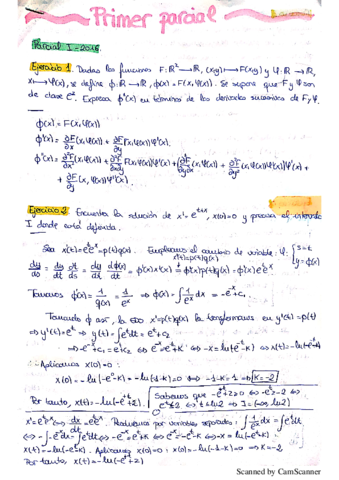 Primer parcial
Parcial I - 2018.
Ejercicio 1. Dadas las funciones F: ℝ²→ℝ, (x,y)↦F(x,y) y φ: ℝ→ℝ,
x↦φ(x), se define ϕ: ℝ→ℝ, ϕ(x) = F(x, φ(x)). Se supone que F y φ son
de clase C². Expresa ϕ''(x) en términos de las derivadas sucesivas de F y φ.
ϕ(x) = F(x, φ(x))
ϕ'(x) = ∂F/∂x (x, φ(x)) + ∂F/∂y (x, φ(x)) φ'(x).
+ ∂F/∂y (x, φ(x)) φ''(x)
Ejercicio 2. Encuentra la solución de x' = e^{t+x}, x(0)=0 y precisa el intervalo
I donde está definida.
Sea x'(t) = e^t e^x = p(t)q(x). Empleamos el cambio de variable: φ: { s=t
y=ϕ(x)
dy/ds = dy/dt dt/ds = dy/dt = dϕ(x)/dt = ϕ'(x)x'(t) = ϕ'(x)p(t)q(x) = ϕ'(x)e^t e^x
Tomamos ϕ'(x) = 1/q(x) = 1/e^x ⇒ ϕ(x) = ∫ 1/e^x dx = -e^{-x} + c₁.
Tomando ϕ así, la edo x' = p(t)q(x) la transformamos en y'(t) = p(t)
⇒ y'(t) = e^t ⇒ y(t) = ∫e^t dt = e^t + c₂
⇒ -e^{-x} + c₁ = e^t + c₂ ⇔ e^{-x} = -e^t - K ⇔ -x = ln(-e^t-K) ⇔ x(t) = -ln(-e^t-K)
∴ Aplicamos x(0)=0:
x(0) = -ln(-e^0-K) = -ln(-1-K) = 0 ⇔ -1-K = 1 ⇔ K=-2
Por tanto, x(t) = -ln(-e^t+2).
Sabemos que -e^t+2 > 0 ⇔ -e^t > -2 ⇔
e^t < 2 ⇔ t < ln 2 ⇒ I = (-∞, ln 2)
x' = e^t e^x ⇔ dx/dt = e^t e^x. Resolvemos por variables separadas: ∫ 1/e^x dx = ∫e^t dt
Por tanto, x(t) = -ln(-e^t+2)
Scanned by CamScanner